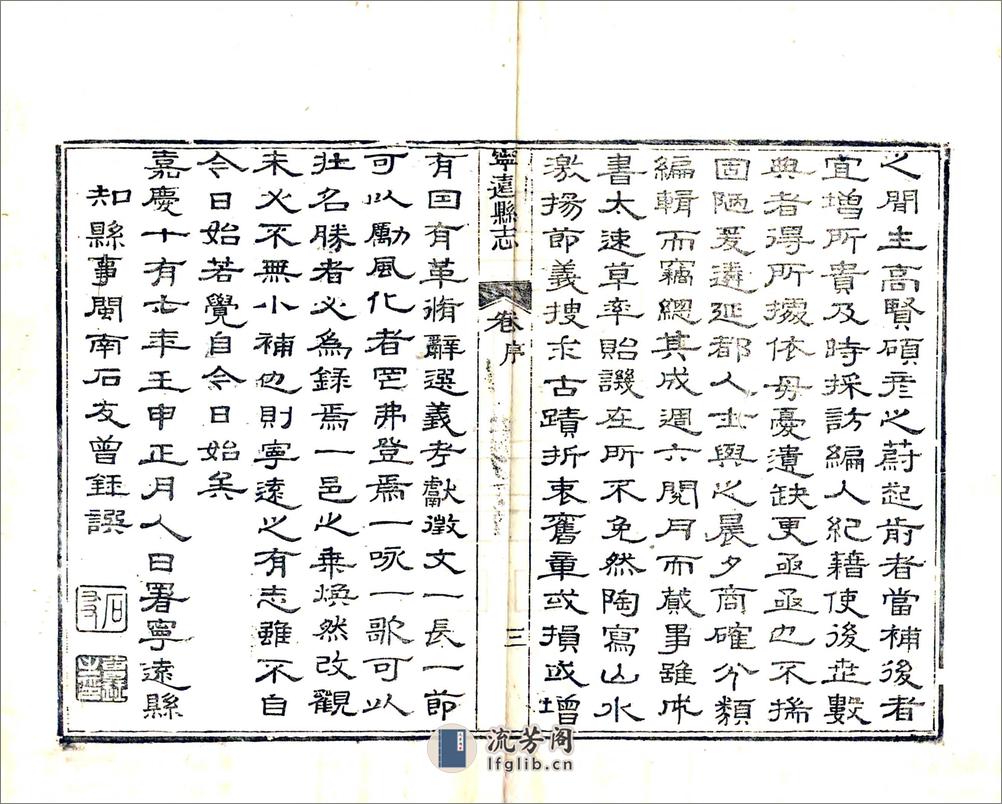 之閒生高賢碩彥之蔚起前者當補後者
宜增所貴及時採訪編人紀籍使後世數
典者得所據依毋憂遺缺更亟亟也不揣
固陋爰遴延都人士與之晨夕商確分類
編輯而竊總其成週六閱月而蕆事雖成
書太速草率貽譏在所不免然陶寫山水
激揚節義搜求古蹟折衷舊章或損或增
寧遠縣志 卷 序 三
有因有革脩辭選義考獻徵文一長一節
可以勵風化者罔弗登焉一咏一歌可以
壯名勝者必為錄焉一邑之乘煥然改觀
未必不無小補也則寧遠之有志雖不自
今日始若覺自今日始矣
嘉慶十有七年壬申正月人日署寧遠縣
知縣事閩南石友曾鈺譔
石友
流芳阁
lfglib.cn